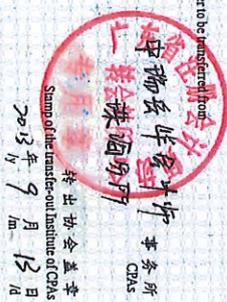 er to be transferred from
中瑞岳华会计师 事务所
陕西分所 CPAs
转出协会盖章
Stamp of the transfer-out Institute of CPAs
2013年 9月 13日
/y /m /d